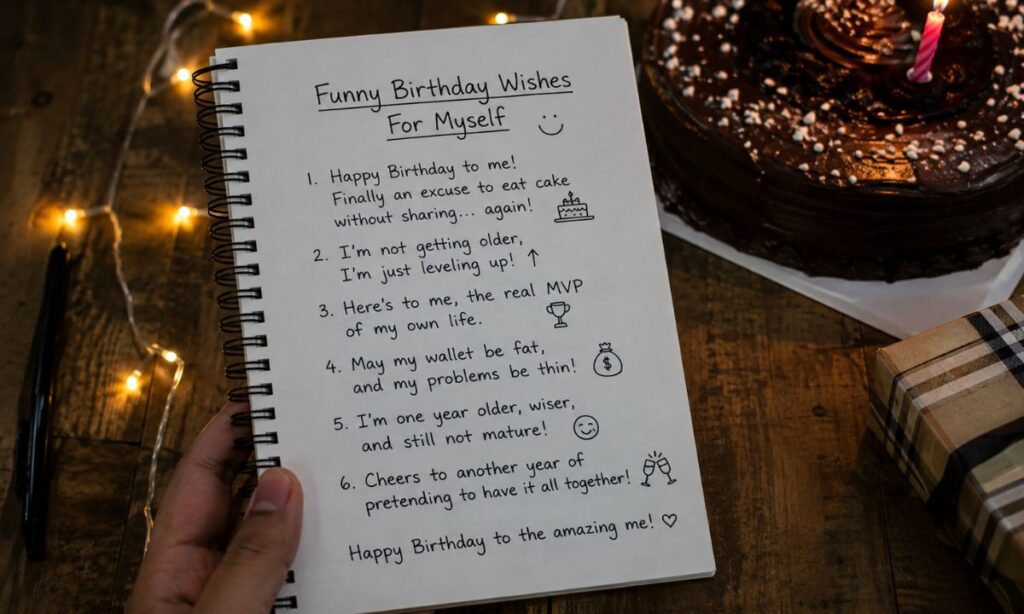 Funny Birthday Wishes
For Myself
1. Happy Birthday to me!
Finally an excuse to eat cake
without sharing... again!
2. I'm not getting older,
I'm just leveling up!
3. Here's to me, the real MVP
of my own life.
4. May my wallet be fat,
and my problems be thin!
$
5. I'm one year older, wiser,
and still not mature!
6. Cheers to another year of
pretending to have it all together!
Happy Birthday to the amazing me!